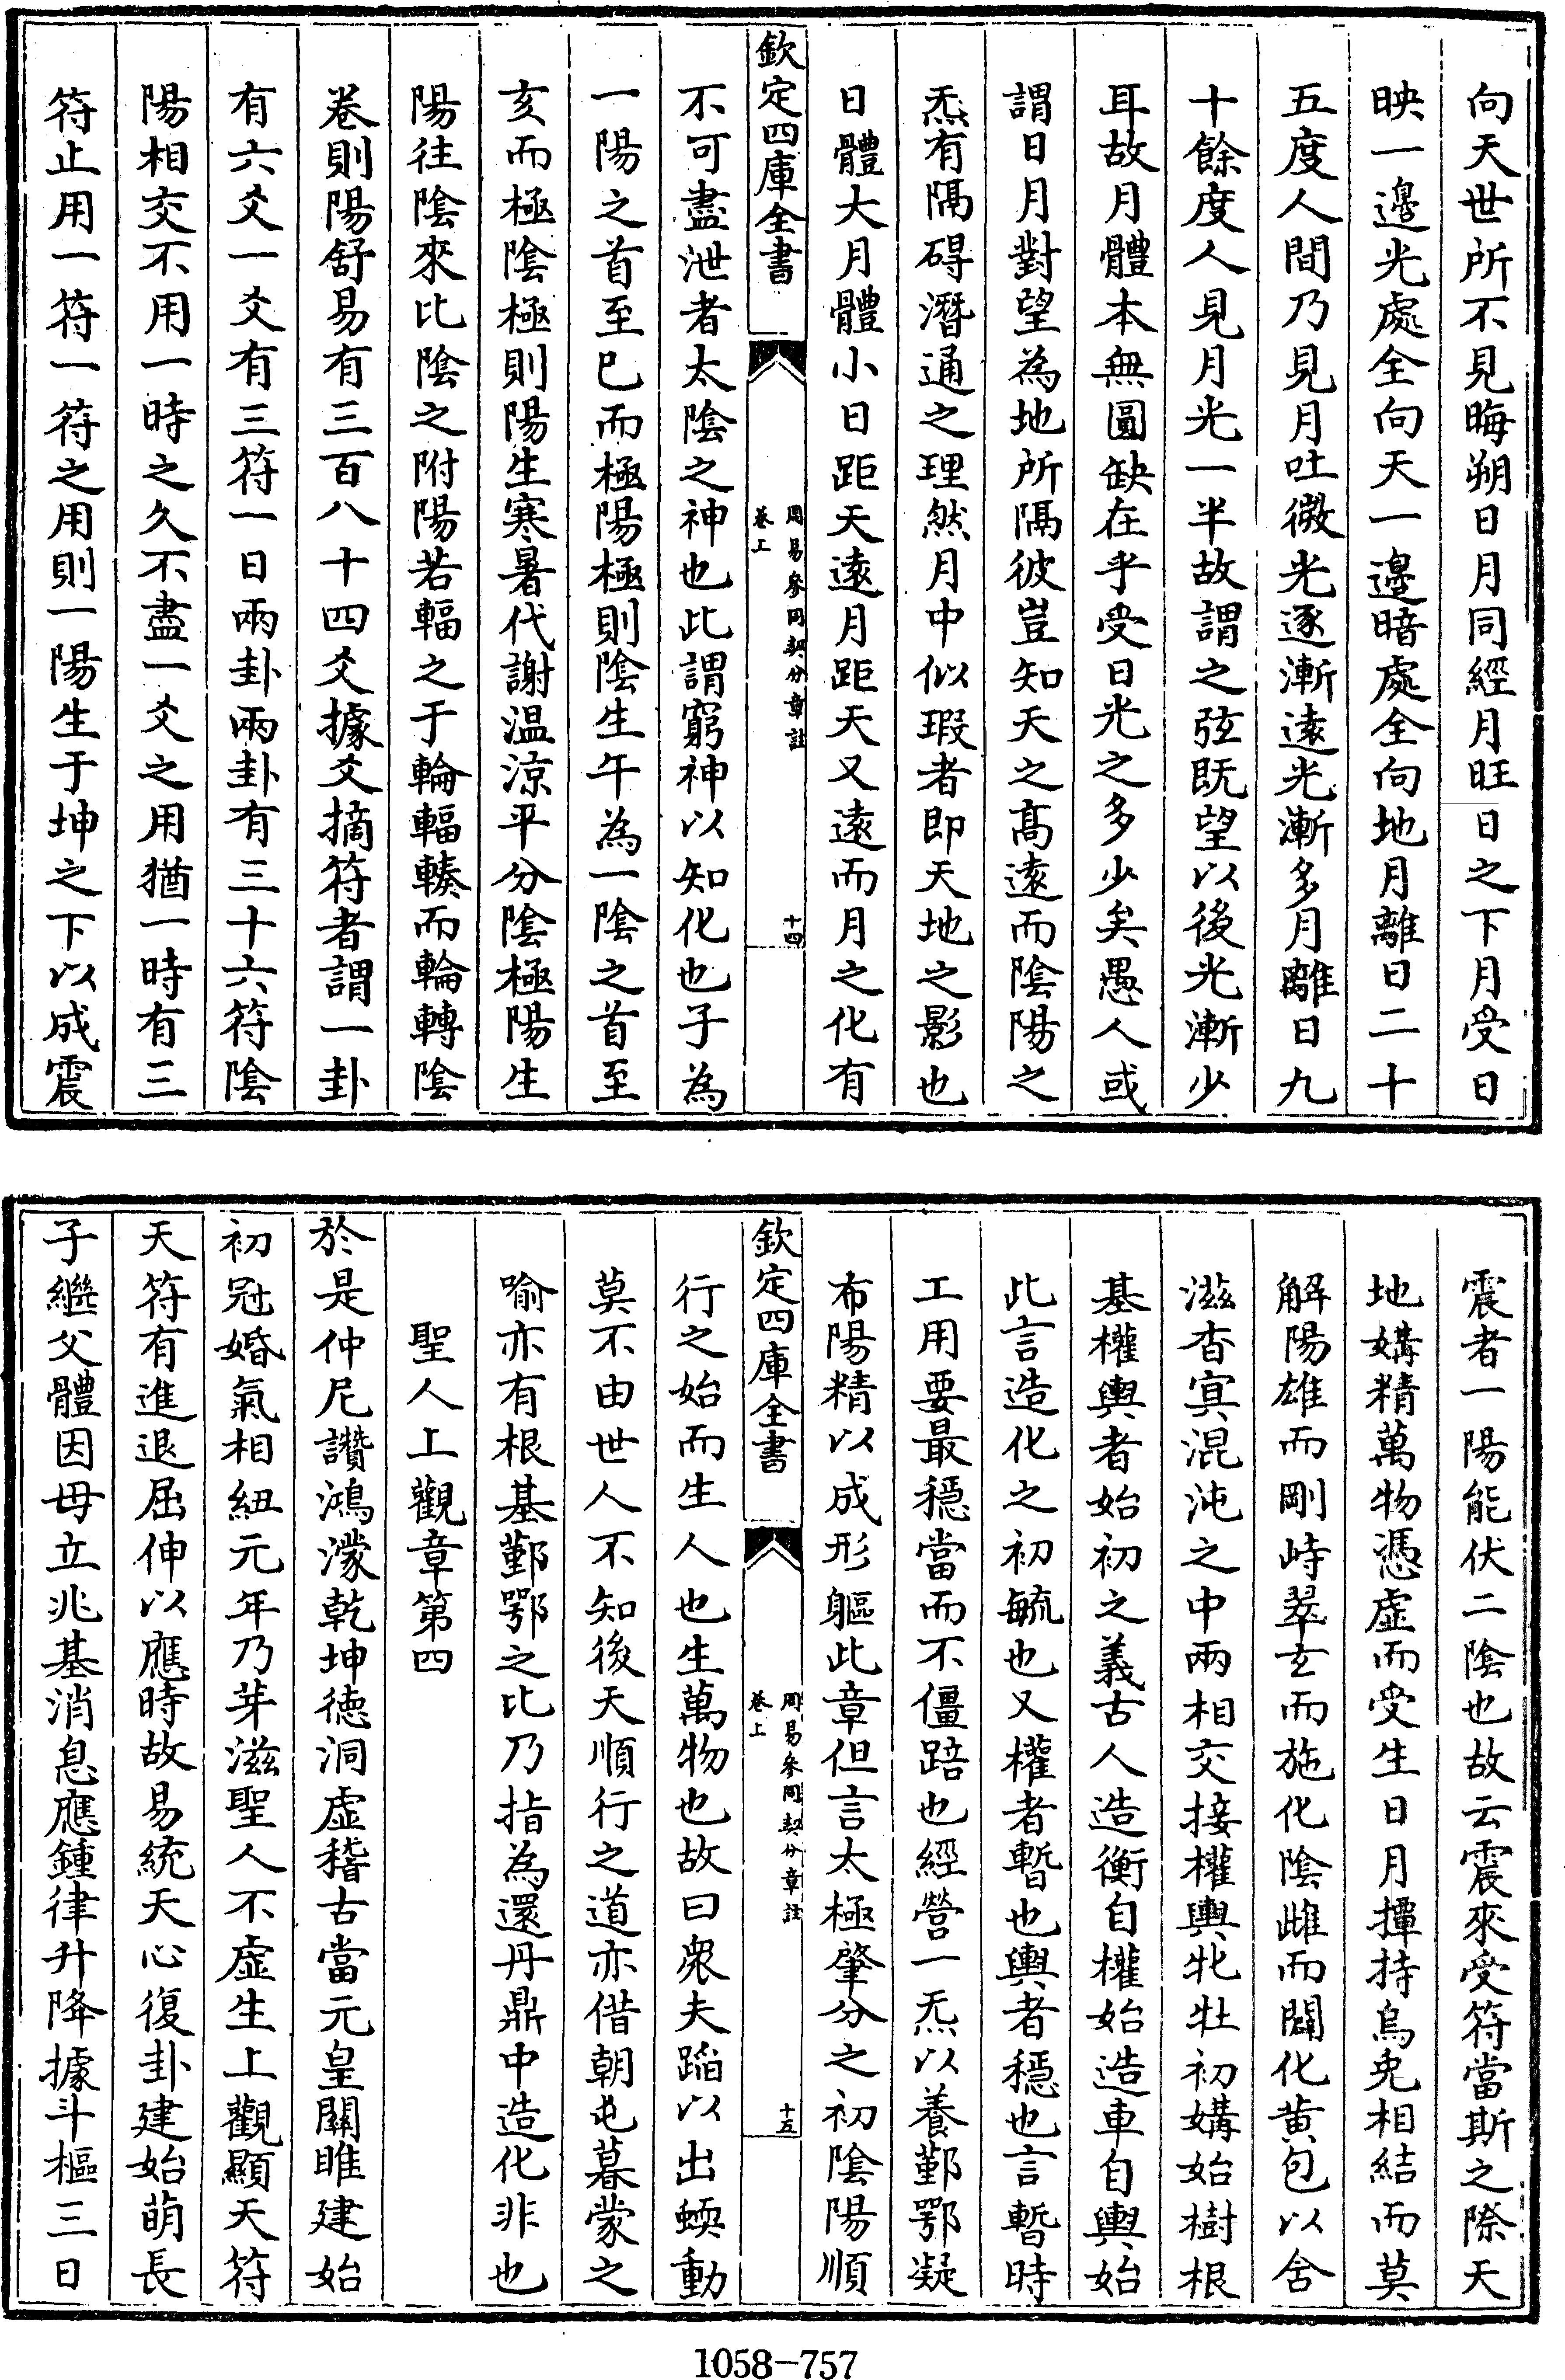 向天世所不見晦朔日月同經月旺日之下月受日
映一邊光處全向天一邊暗處全向地月離日二十
五度人間乃見月吐微光逐漸遠光漸多月離日九
十餘度人見月光一半故謂之弦既望以後光漸少
耳故月體本無圓缺在乎受日光之多少矣愚人或
謂日月對望為地所隔彼豈知天之高遠而陰陽之
炁有隔碍潛通之理然月中似瑕者即天地之影也
日體大月體小日距天遠月距天又遠而月之化有
欽定四庫全書
周易參同契分章註
卷上
十四
不可盡泄者太陰之神也此謂窮神以知化也子為
一陽之首至巳而極陽極則陰生午為一陰之首至
亥而極陰極則陽生寒暑代謝温涼平分陰極陽生
陽往陰來比陰之附陽若輻之于輪輻輳而輪轉陰
卷則陽舒易有三百八十四爻據爻摘符者謂一卦
有六爻一爻有三符一日兩卦兩卦有三十六符陰
陽相交不用一時之久不盡一爻之用猶一時有三
符止用一符一符之用則一陽生于坤之下以成震
震者一陽能伏二陰也故云震來受符當斯之際天
地媾精萬物憑虛而受生日月撢持烏兔相結而莫
解陽雄而剛峙翠玄而施化陰雌而闢化黄包以舍
滋杳冥混沌之中兩相交接權輿牝牡初媾始樹根
基權輿者始初之義古人造衡自權始造車自輿始
此言造化之初毓也又權者暫也輿者穩也言暫時
工用要最穩當而不僵踣也經營一炁以養鄞鄂凝
布陽精以成形軀此章但言太極肇分之初陰陽順
欽定四庫全書
周易參同契分章註
卷上
十五
行之始而生人也生萬物也故曰衆夫蹈以出蝡動
莫不由世人不知後天順行之道亦借朝屯暮蒙之
喻亦有根基鄞鄂之比乃指為還丹鼎中造化非也
聖人上觀章第四
於是仲尼讚鴻濛乾坤德洞虛稽古當元皇關雎建始
初冠婚氣相紐元年乃芽滋聖人不虛生上觀顯天符
天符有進退屈伸以應時故易統天心復卦建始萌長
子繼父體因母立兆基消息應鍾律升降據斗樞三日
1058-757